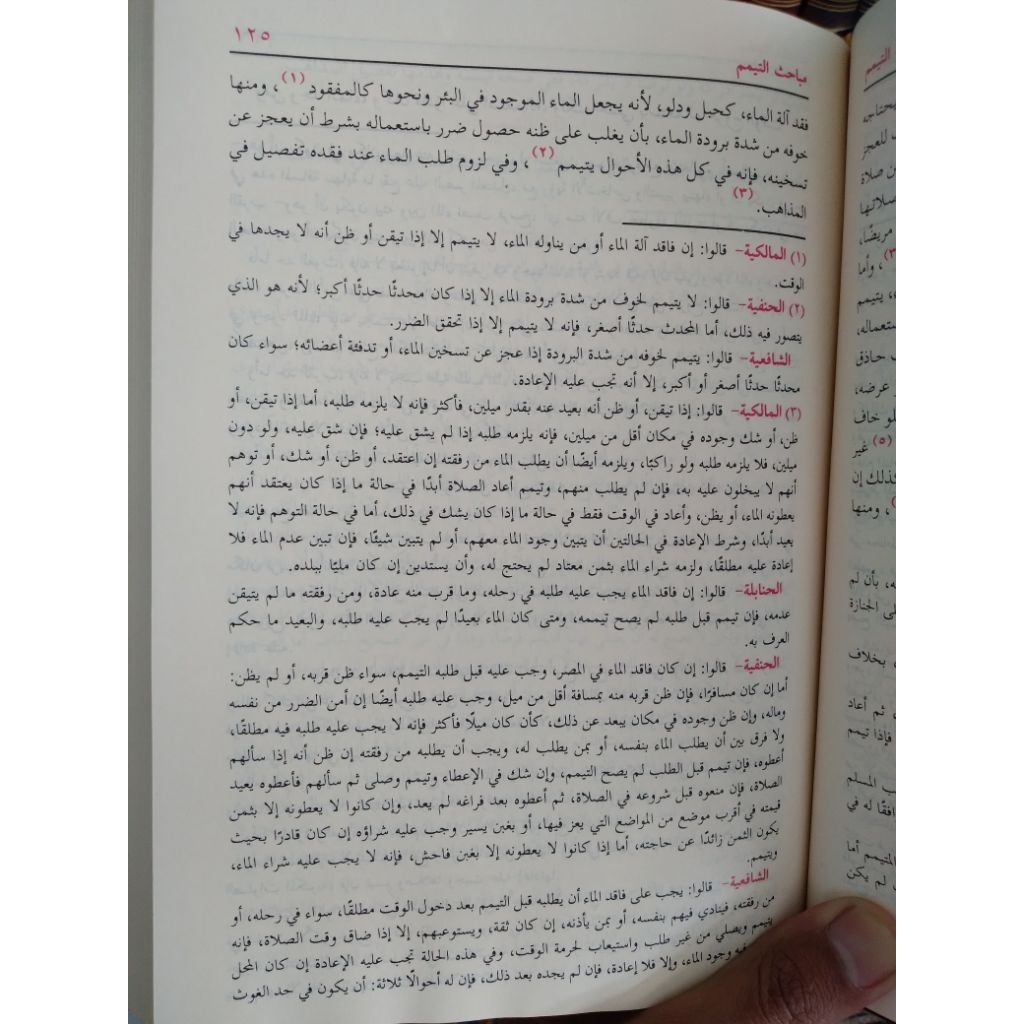 مباحث التيمم ١٢٥
فقد آلة الماء، كحبل ودلو، لأنه يجعل الماء الموجود في البئر ونحوها كالمفقود (١)، ومنها
خوفه من شدة برودة الماء، بأن يغلب على ظنه حصول ضرر باستعماله بشرط أن يعجز عن
تسخينه، فإنه في كل هذه الأحوال يتيمم (٢)، وفي لزوم طلب الماء عند فقده تفصيل في
المذاهب. (٣)
(١) المالكية- قالوا: إن فاقد آلة الماء أو من يناوله الماء، لا يتيمم إلا إذا تيقن أو ظن أنه لا يجدها في
الوقت.
(٢) الحنفية- قالوا: لا يتيمم لخوف من شدة برودة الماء إلا إذا كان محدثًا حدثًا أكبر؛ لأنه هو الذي
يتصور فيه ذلك، أما المحدث حدثًا أصغر، فإنه لا يتيمم إلا إذا تحقق الضرر.
الشافعية- قالوا: يتيمم لخوفه من شدة البرودة إذا عجز عن تسخين الماء، أو تدفئة أعضائه؛ سواء كان
محدثًا حدثًا أصغر أو أكبر، إلا أنه تجب عليه الإعادة.
(٣) المالكية- قالوا: إذا تيقن، أو ظن أنه بعيد عنه بقدر ميلين، فأكثر فإنه لا يلزمه طلبه، أما إذا تيقن، أو
ظن، أو شك وجوده في مكان أقل من ميلين، فإنه يلزمه طلبه إذا لم يشق عليه؛ فإن شق عليه، ولو دون
ميلين، فلا يلزمه طلبه ولو راكبًا، ويلزمه أيضًا أن يطلب الماء من رفقته إن اعتقد، أو ظن، أو شك، أو توهم
أنهم لا يبخلون عليه به، فإن لم يطلب منهم، وتيمم أعاد الصلاة أبدًا في حالة ما إذا كان يعتقد أنهم
يعطونه الماء، أو يظن، وأعاد في الوقت فقط في حالة ما إذا كان يشك في ذلك، أما في حالة التوهم فإنه لا
يعيد أبدًا، وشرط الإعادة في الحالتين أن يتبين وجود الماء معهم، أو لم يتبين شيئًا، فإن تبين عدم الماء فلا
إعادة عليه مطلقًا، ولزمه شراء الماء بثمن معتاد لم يحتج له، وأن يستدين إن كان مليًا ببلده.
الحنابلة- قالوا: إن فاقد الماء يجب عليه طلبه في رحله، وما قرب منه عادة، ومن رفقته ما لم يتيقن
عدمه، فإن تيمم قبل طلبه لم يصح تيممه، ومتى كان الماء بعيدًا لم يجب عليه طلبه، والبعيد ما حكم
العرف به.
الحنفية- قالوا: إن كان فاقد الماء في المصر، وجب عليه قبل طلبه التيمم، سواء ظن قربه، أو لم يظن:
أما إن كان مسافرًا، فإن ظن قربه منه بمسافة أقل من ميل، وجب عليه طلبه أيضًا إن أمن الضرر من نفسه
وماله، وإن ظن وجوده في مكان يبعد عن ذلك، كأن كان ميلًا فأكثر فإنه لا يجب عليه طلبه فيه مطلقًا،
ولا فرق بين أن يطلب الماء بنفسه، أو بمن يطلب له، ويجب أن يطلبه من رفقته إن ظن أنه إذا سألهم
أعطوه، فإن تيمم قبل الطلب لم يصح التيمم، وإن شك في الإعطاء وتيمم وصلى ثم سألهم فأعطوه يعيد
الصلاة، فإن منعوه قبل شروعه في الصلاة، ثم أعطوه بعد فراغه لم يعد، وإن كانوا لا يعطونه إلا بثمن
قيمته في أقرب موضع من المواضع التي يعز فيها، أو بغبن يسير وجب عليه شراؤه إن كان قادرًا بحيث
يكون الثمن زائدًا عن حاجته، أما إذا كانوا لا يعطونه إلا بغبن فاحش، فإنه لا يجب عليه شراء الماء،
ويتيمم.
الشافعية- قالوا: يجب على فاقد الماء أن يطلبه قبل التيمم بعد دخول الوقت مطلقًا، سواء في رحله، أو
من رفقته، فينادي فيهم بنفسه، أو بمن يأذنه، إن كان ثقة، ويستوعبهم، إلا إذا ضاق وقت الصلاة، فإنه
يتيمم ويصلي من غير طلب واستيعاب لحرمة الوقت، وفي هذه الحالة تجب عليه الإعادة إن كان المحل
فيه وجود الماء، وإلا فلا إعادة، فإن لم يجده بعد ذلك، فإن له أحوالًا ثلاثة: أن يكون في حد الغوث